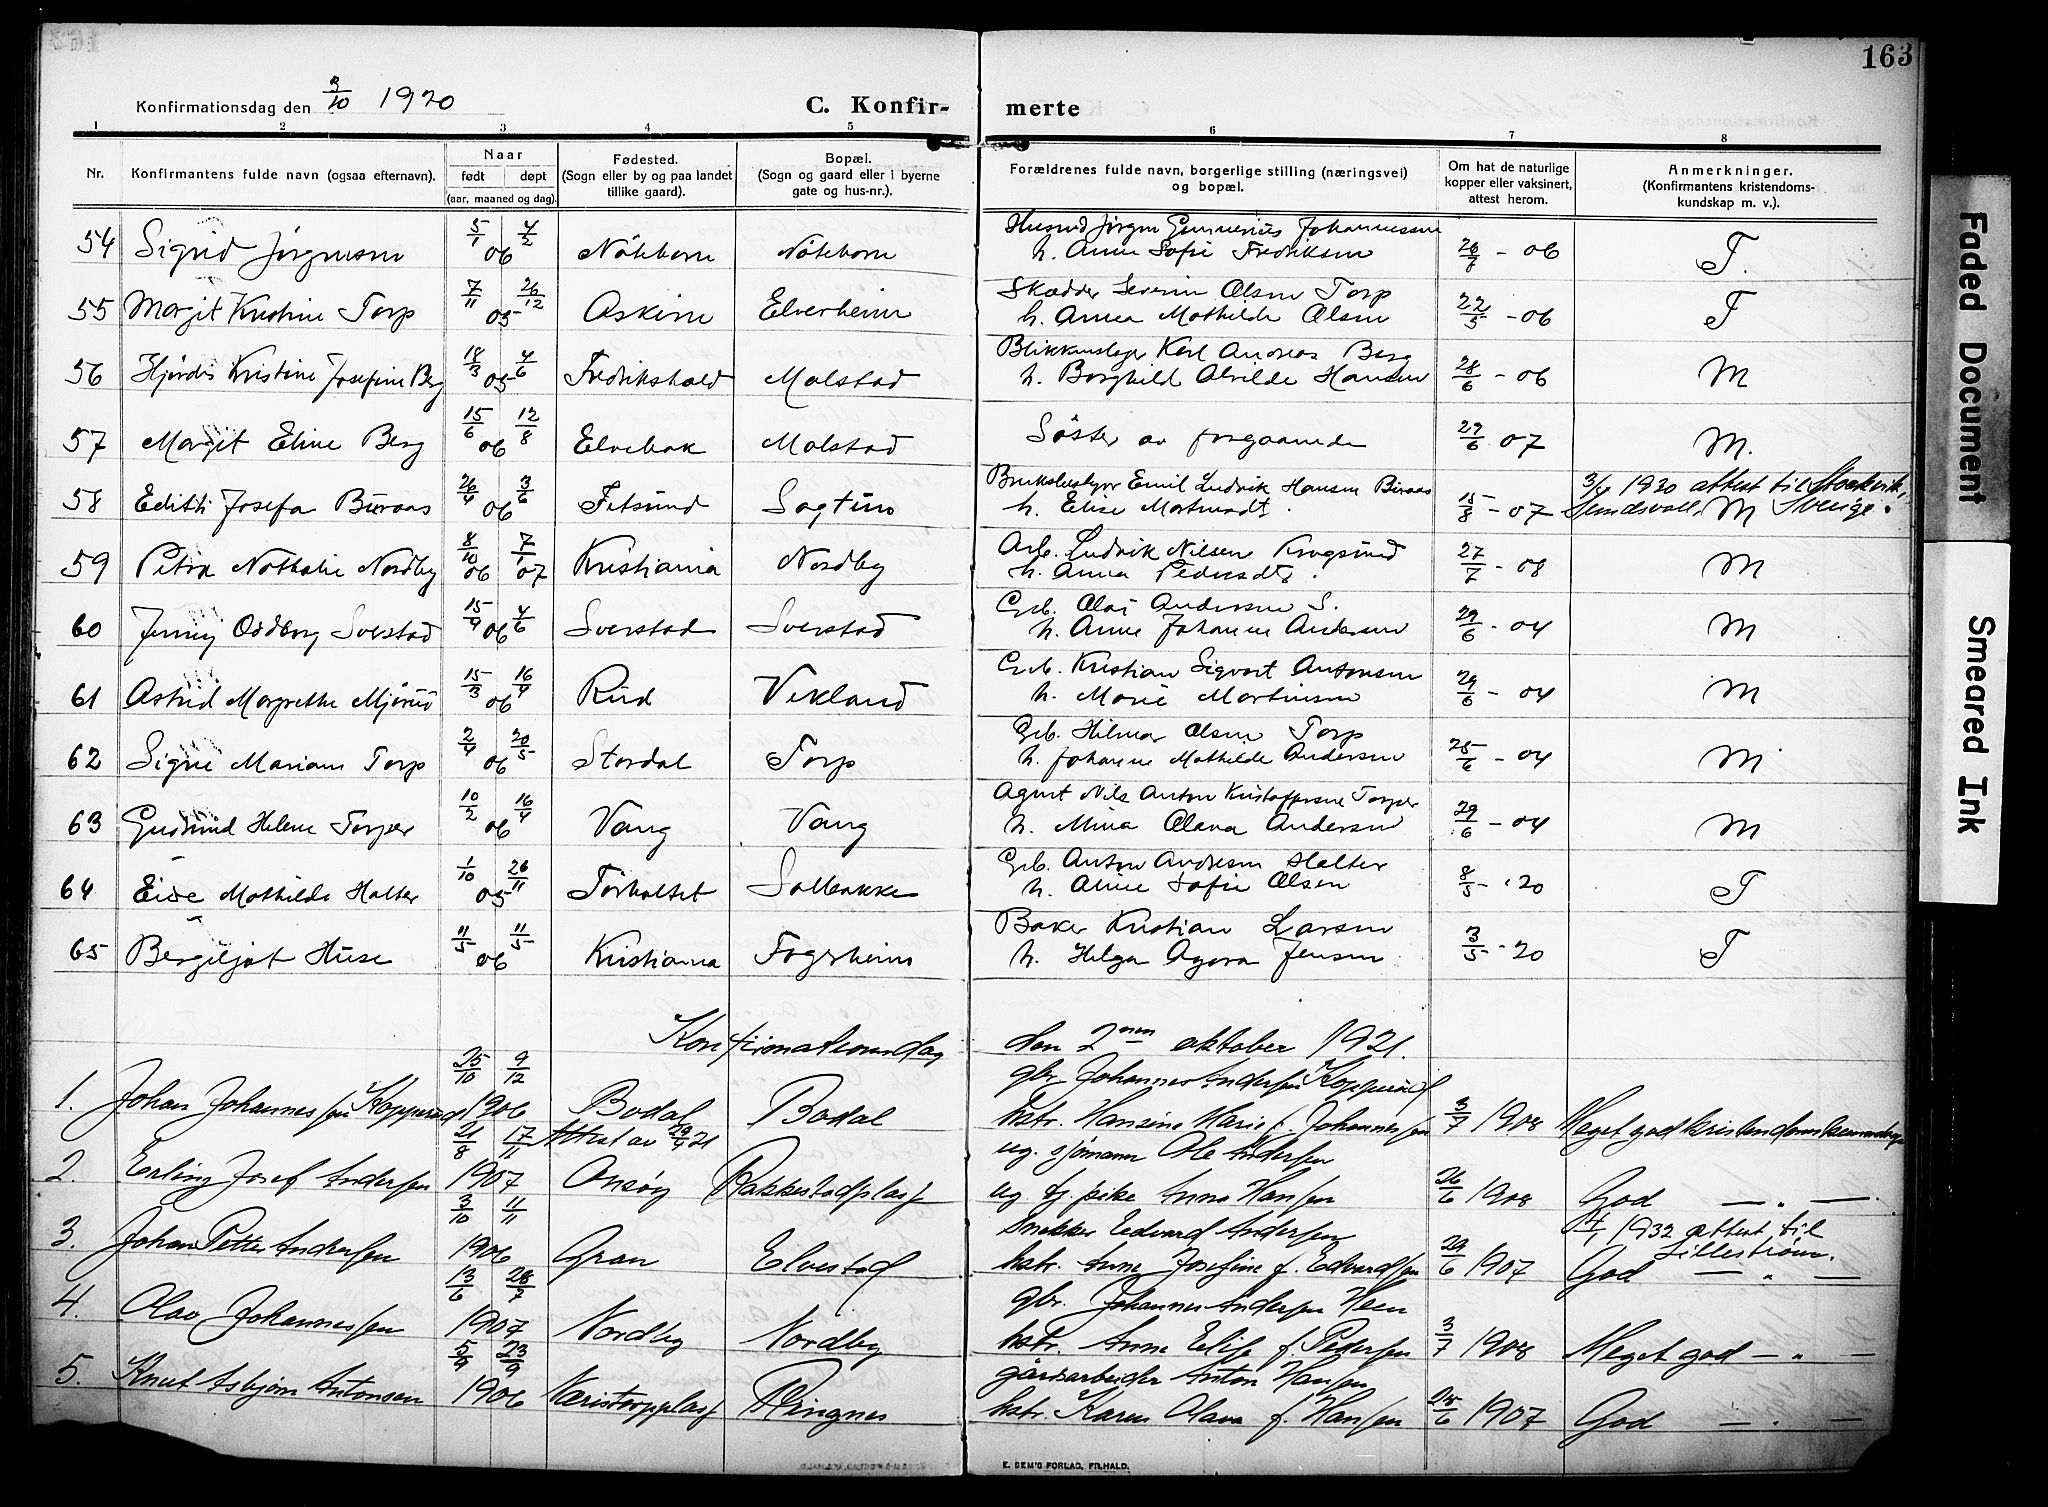 163
Konfirmationsdag den 3/10 1920 C. Konfir- merte
1 2 3 4 5 6 7 8
Nr. Konfirmantens fulde navn (ogsaa efternavn). Naar født døpt (aar, maaned og dag). Fødested. (Sogn eller by og paa landet tillike gaard). Bopæl. (Sogn og gaard eller i byerne gate og hus-nr.). Forældrenes fulde navn, borgerlige stilling (næringsvei) og bopæl. Om hat de naturlige kopper eller vaksinert, attest herom. Anmerkninger. (Konfirmantens kristendoms- kundskap m. v.).
54 Sigrid Jørgensen 5/1 06 4/2 Nöteborn Nöteborn Jørgen Johannessen
h. Anne Sofie Fredriksen - 06 T.
55 Margit Kristine Torp 7/11 05 26/12 Askim Elverheim Skrædder Severin Olsen Torp
h. Anna Mathilde Olsen 22/5 - 06 T
56 Hjørdis Kristine Josefine Berg 18/3 05 4/6 Fredrikshald Malstad Blikkenslager Karl Andreas Berg
h. Borghild Alvilde Hansen 28/6 - 06 M
57 Margit Eline Berg 15/6 06 12/8 Elvebak Malstad Söster av forgaaende 29/6 07 M.
58 Edith Josefa Buraas 26/4 06 3/6 Fetsund Sagtun Bruksbestyrer Emil Ludvik Hansen Buraas
h. Elise Martinsdt. 15/8 - 07 1920 attest til Stockvik, Sundsvall, Sverige. M
59 Petra Nathalie Nordby 8/10 06 7/1 07 Kristiania Nordby Arb. Ludvik Nilsen Krogsund
h. Anna Pedersdt. 27/7 - 08 M
60 Jenny Oddborg Sverstad 15/9 06 4/6 Sverstad Sverstad Grb. Olaf Andersen S.
h. Anne Johanne Andersen 29/6 - 04 M
61 Astrid Margrethe Mjørud 15/3 06 16/4 Rud Vikland Grb. Kristian Sigvart Antonsen
h. Marie Martinsen 29/6 - 04 M
62 Signe Mariane Torp 2/4 06 20/5 Stordal Torp Grb. Hilmar Olsen Torp
h. Johanne Mathilde Andersen 25/6 - 04 M
63 Gudrund Helene Torper 10/2 06 16/4 Vang Vang Agent Nils Anton Kristoffersen Torper
h. Mina Olava Andersen 29/6 - 04 M
64 Eide Mathilde Holter 1/10 05 26/11 Torholtet Solbakke Grb. Anton Andresen Holter
h. Aline Sofie Olsen 8/5 - 20 T
65 Bergljot Huse 11/5 06 11/5 Kristiania Fagerheim Baker Kristian Larsen
h. Helga Agora Jensen 3/5 - 20 T
Konfirmationsdag den 2nen oktober 1921.
1. Johan Johannessen Kopperud 25/10 1906 9/12 Bodal Bodal gbr Johannes Andersen Kopperud
hstr. Hansine Marie f. Johannessen 3/7 1908 Meget god kristendomskundskap
Attest av 29/4 21
2. Erling Josef Andersen 21/8 1907 17/11 Onsøy Rakkestadplass ug. sjømann Ole Andersen
ug. tj. pike Anna Hansen 26/6 1908 God — „ —
3. Johan Petter Andersen 3/10 1906 11/11 Gran Elvestad Snekker Edvard Andersen
hstr. Anne Josefine f. Edvardsen 29/6 1907 1932 attest til Lillestrøm. God — „ —
4. Olav Johannessen 13/6 1907 28/7 Nordby Nordby gbr. Johannes Andersen Heen
hstr. Anne Elise f. Pedersen 3/7 1908 Meget god — „ —
5. Knut Asbjørn Antonsen 5/9 1906 23/9 Næristorpplass Ringnes gårdsarbeider Anton Hansen
hstr. Karen Olava f. Hansen 25/6 1907 God — „ —
E. SEM'S FORLAG, F.HALD.
Faded Document
Smeared Ink